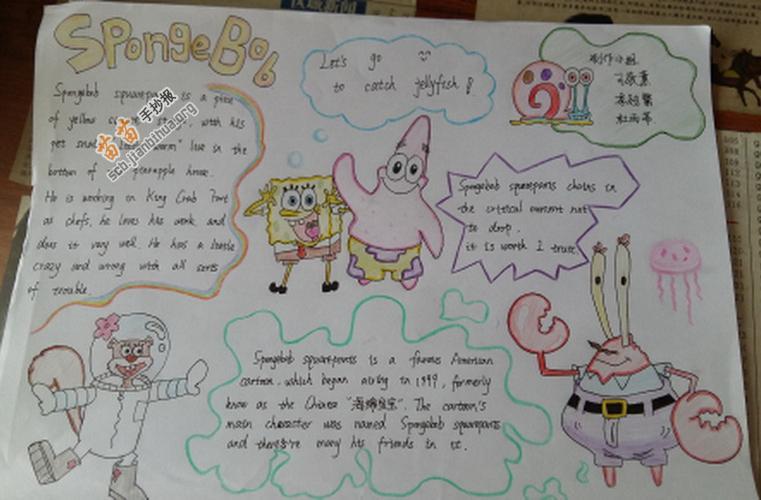 SPongeBob
Spongebob squarepants is a piece
of yellow, with his
pet live in the
bottom of pineapple house.
He is working in King Crab Fort
as chefs, he loves his work and
does it very well. He has a little
crazy and wrong with all sorts
of trouble.
苗苗手抄报
scb.jianbihua.org
Let's go
to catch jellyfish!
制作小组
Spongebob squarepants chains in
the critical moment not
to drop.
it is worth I trust.
Spongebob squarepants is a famous American
cartoon, which began airing in 1999, formerly
know as the Chinese "海绵宝宝". The cartoon's
main character was named Spongebob squarepants
and there're many his friends in it.